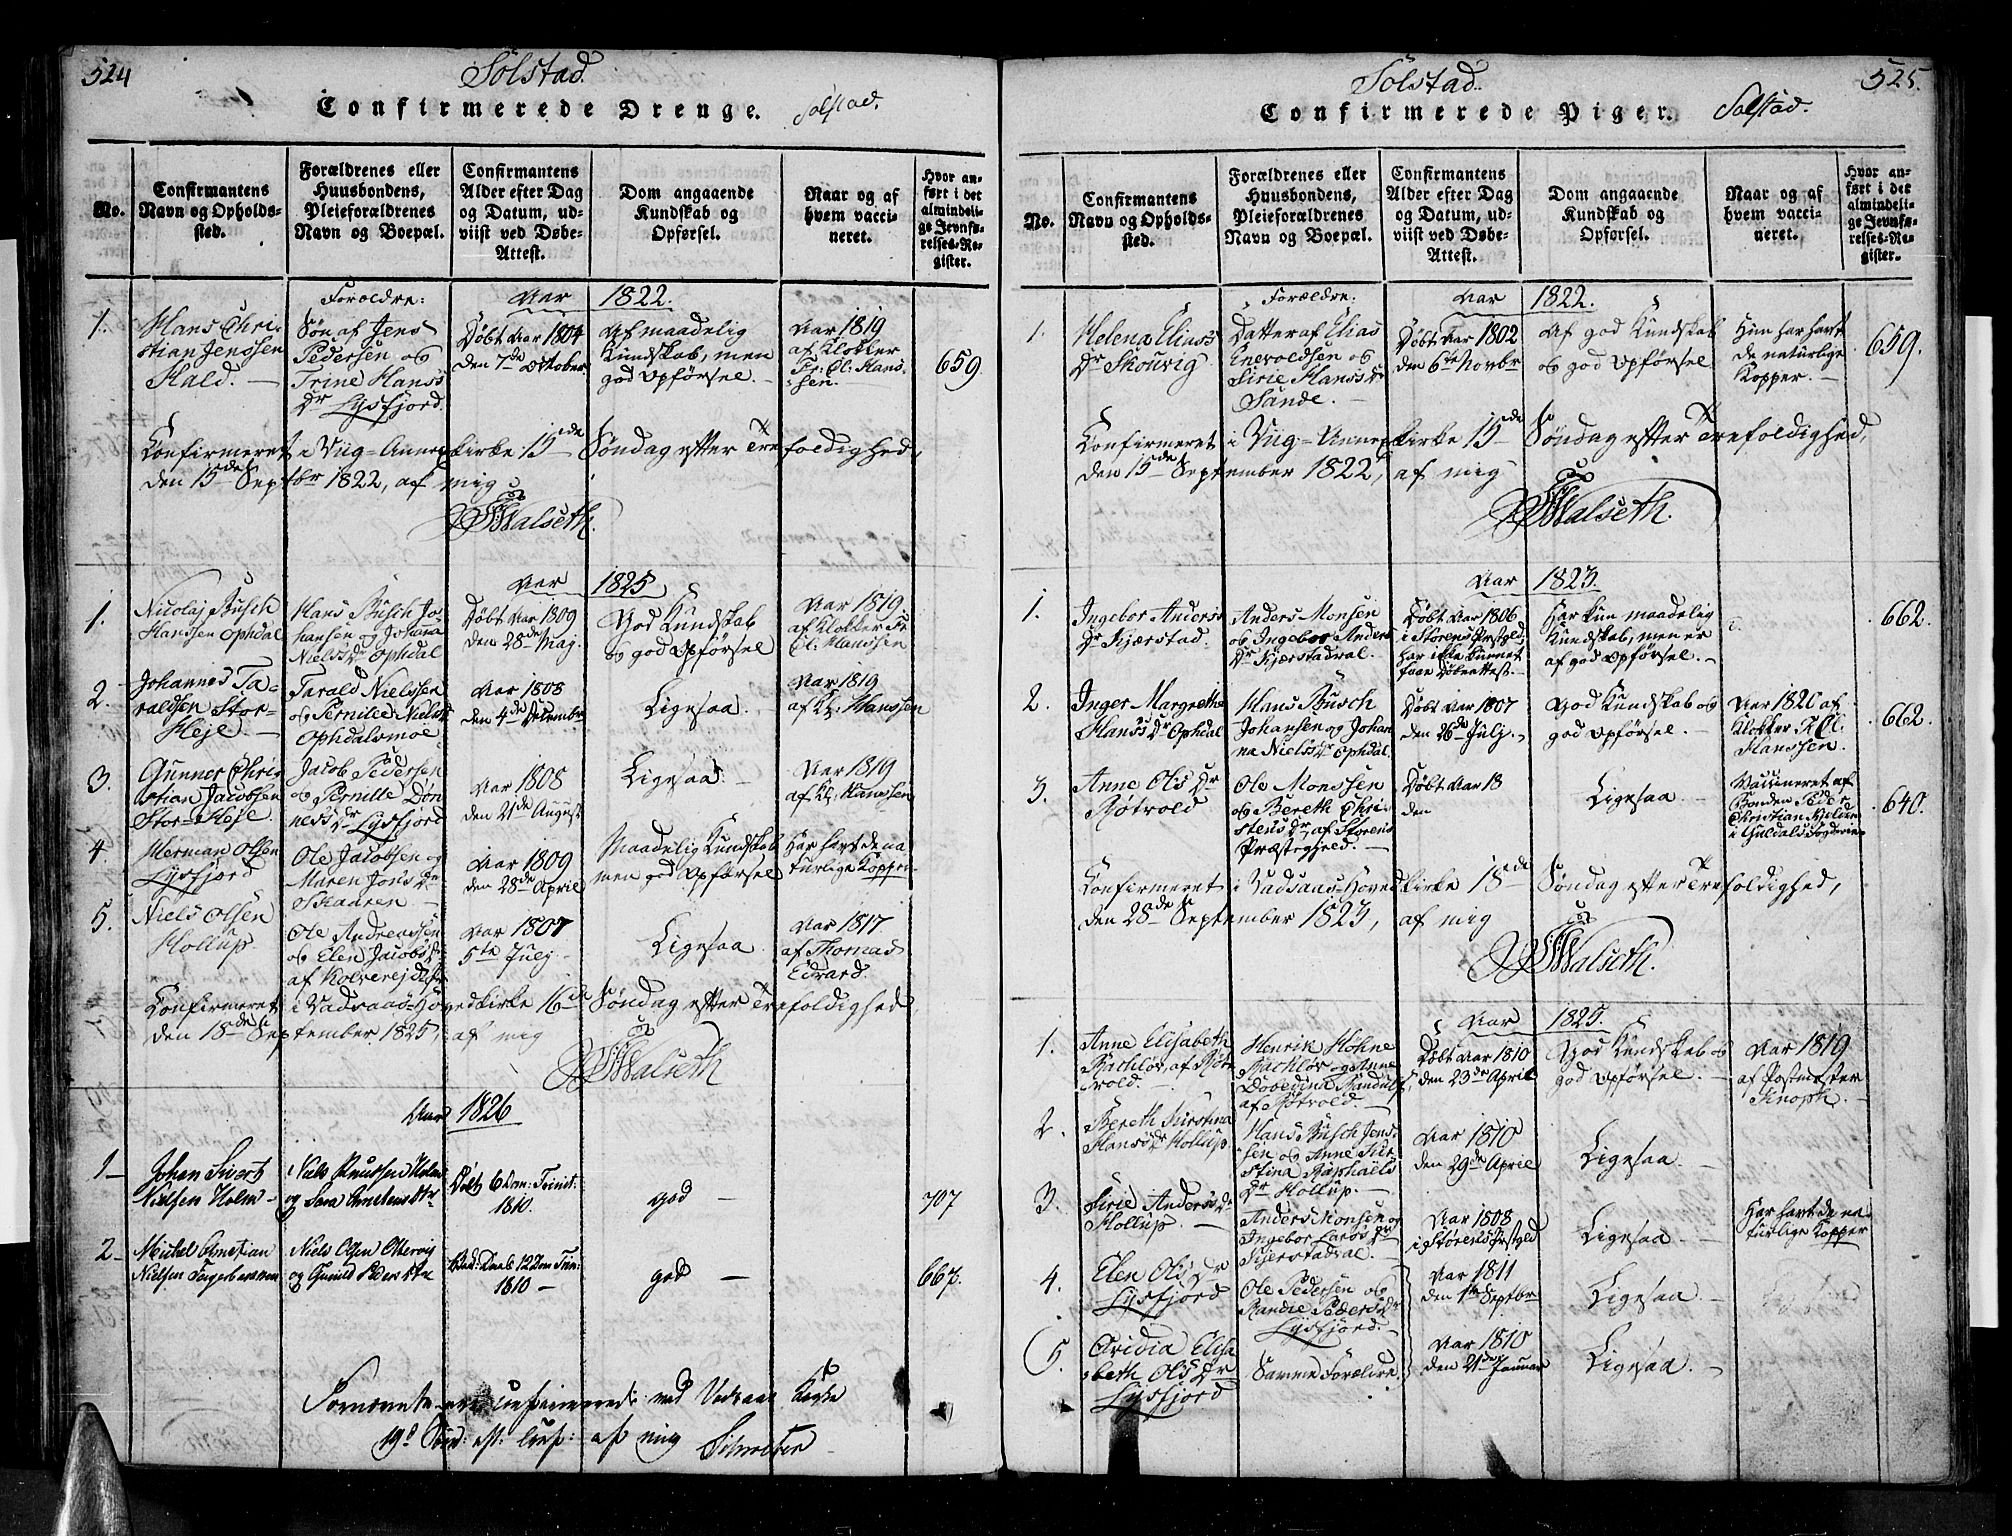 524
Solstad.
Confirmerede Drenge.
Solstad.
No.
Confirmantens
Navn og Opholds-
sted.
Forældrenes eller
Huusbondens,
Pleieforældrenes
Navn og Boepæl.
Confirmantens
Alder efter Dag
og Datum, ud-
viist ved Døbe-
Attest.
Dom angaaende
Kundskab og
Opførsel.
Naar og af
hvem vacci-
neret.
Hvor an-
ført i det
almindeli-
ge Jevnfø-
relses-Re-
gister.
Aar 1822.
1.
Hans Chri-
stian Jenssen
Hald.
Foroldre:
Søn af Jens
Pedersen og
Trine Hanss
Dr Lysfjord.
Døbt Aar 1804
den 7de October
Af maadelig
Kundskab, men
god Opførsel
Aar 1819
af Klokker
Fr: Cl: Hans
sen.
659.
Confirmeret i Viig-Annexkirke 15de Søndag efter Trefoldighed,
den 15de Septbr 1822, af mig
Walseth.
Aar 1825
1.
Nicolaj Busch
Hanssen Ophdal
Hans Busch Jo-
hansen og Johana
Nielsdr Ophdal
Døbt Aar 1809
den 28de Maj.
God Kundskab
og god Opførsel
Aar 1819
af Klokker Fr
Cl: Hanssen
2.
Johannes Ta-
raldsen Stor-
Heje.
Tarald Nielssen
og Pernille Niels
Ophdalsmoe
Aar 1808
den 4de Decembr
Ligesaa.
Aar 1819
af Kl: Hanssen
3.
Gunner Chri-
stian Jacobsen
Stor-Heje.
Jacob Pedersen
og Pernille Døn-
ness Dr Lysfjord
Aar 1808
den 21de August
Ligesaa.
Aar 1819
af Kl: Hanssen
4.
Herman Olsen
Lysfjord
Ole Jacobsen og
Maren Jons Dr
Skaaren.
Aar 1809
den 28de April
Maadelig Kundskab
men god Opførsel
Har havt de na
turlige Kopper.
5.
Niels Olsen
Hollup.
Ole Andreassen
og Elen Jacobs Dr
af Kolverejdet
Aar 1807
5te Julj
Ligesaa
Aar 1817
af Thomas
Edvard.
Confirmeret i Vadsaas-Hovedkirke 16de Søndag efter Trefoldighed,
den 18de September 1825, af mig
Walseth
Aar 1826
1
Johan
Nielsen Holm
Niels Knussen Holm
og Sara
Døbt 6 Dom: Trinit:
1810.
god
707
2
Michel
Nielsen
Niels Olsen
og Gunild Peders
12 Dom Trin:
1810
god
667.
confirmerede ved Vadsaas Kirke
19d af mig
525.
Solstad.
Confirmerede Piger.
Solstad.
No.
Confirmantens
Navn og Opholds-
sted.
Forældrenes eller
Huusbondens,
Pleieforældrenes
Navn og Boepæl.
Confirmantens
Alder efter Dag
og Datum, ud-
viist ved Døbe-
Attest.
Dom angaaende
Kundskab og
Opførsel.
Naar og af
hvem vacci-
neret.
Hvor an-
ført i det
almindeli-
ge Jevnfø-
relses-Re-
gister.
Aar 1822.
1.
Helena Eliass
Dr Skouvig
Forældre:
Datter af Elias
Enevoldsen og
Sirie Hanss Dr
Sande.
Døbt Aar 1802
den 6te Novbr
Af god Kundskab
og god Opførsel
Hun har havt
de naturlige
Kopper.
659.
Confirmeret i Viig-Annexkirke 15de Søndag efter Trefoldighed,
den 15de September 1822, af mig
Walseth.
Aar 1823.
1.
Ingebor Anderss
Dr Kjærstad.
Anders Monsen
og Ingebor Anders
Dr Kjærstadval.
Døbt Aar 1806
i Størens Præstgld.
har ikke kunnet
faae Døbeattest.
Har kun maadelig
Kundskab, men er
af god Opførsel.
662.
2.
Inger Margrethe
Hanss Dr Ophdal
Hans Busch
Johansen og Johan
na Nielsdr Ophdal.
Døbt Aar 1807
den 26de Julj.
God Kundskab og
god Opførsel.
Aar 1820 af
Klokker F. Cl.
Hanssen.
662.
3.
Anne Ols Dr
Røtvold
Ole Monssen
og Bereth Chri-
stens Dr af Størens
Præstegjeld.
Døbt Aar 18
den
Ligesaa
Vaccineret af
Bonden Peder
Christian Kjelden
i Guldals Fogderie
640.
Confirmeret i Vadsaas-Hovedkirke 18de Søndag efter Trefoldighed,
den 28de September 1823, af mig
Walseth.
Aar 1825.
1.
Anne Elisabeth
Bachlør, af Røt-
vold.
Henrik Høhne
Bachlør og Anne
Dovedina Randulf
af Røtvold.
Døbt Aar 1810
den 23de April
God Kundskab og
god Opførsel.
Aar 1819
af Postmester
Knoph.
2.
Bereth Kirstina
Hans Dr Hollup.
Hans Busch Jens-
sen og Anne Kir
stina Raphaels
Dr Hollup.
Aar 1810
den 29de April
Ligesaa
3.
Sirie Anders Dr
Hollup.
Anders Monsen og
Ingebor Lars Dr
Kjerstadval.
Aar 1808
i Størens Præstgld
Ligesaa
Har havt de na-
turlige Kopper
4.
Elen Ols Dr
Lysfjord
Ole Pedersen og
Randie Peders Dr
Lysfjord.
Aar 1811
den 1ste Septbr
Ligesaa
5.
Aridia Elisa
beth Ols Dr
Lysfjord
Samme Forældre
Aar 1810
den 21de Januar
Ligesaa.